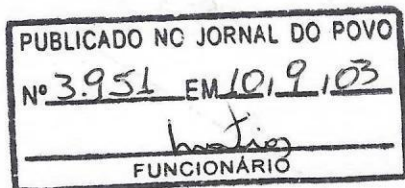 PUBLICADO NO JORNAL DO POVO
Nº 3.951 EM 10, 9, 03
FUNCIONÁRIO